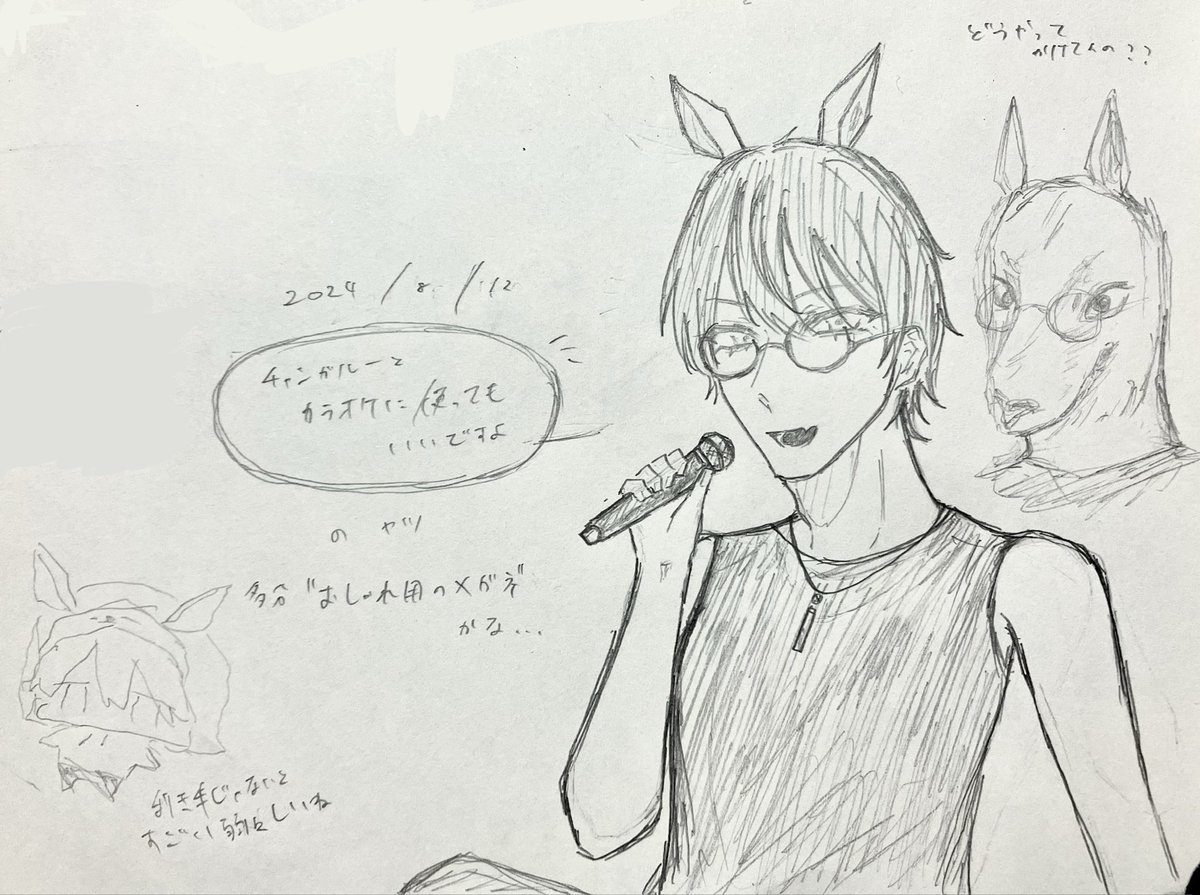 どうやって
かけてんの??
2024/8/12
チャンガルーと
カラオケに使っても
いいですよ
のヤツ
多分"おしゃれ用のメガネ"
かな...
利き手じゃないと
すごい弱々しいね